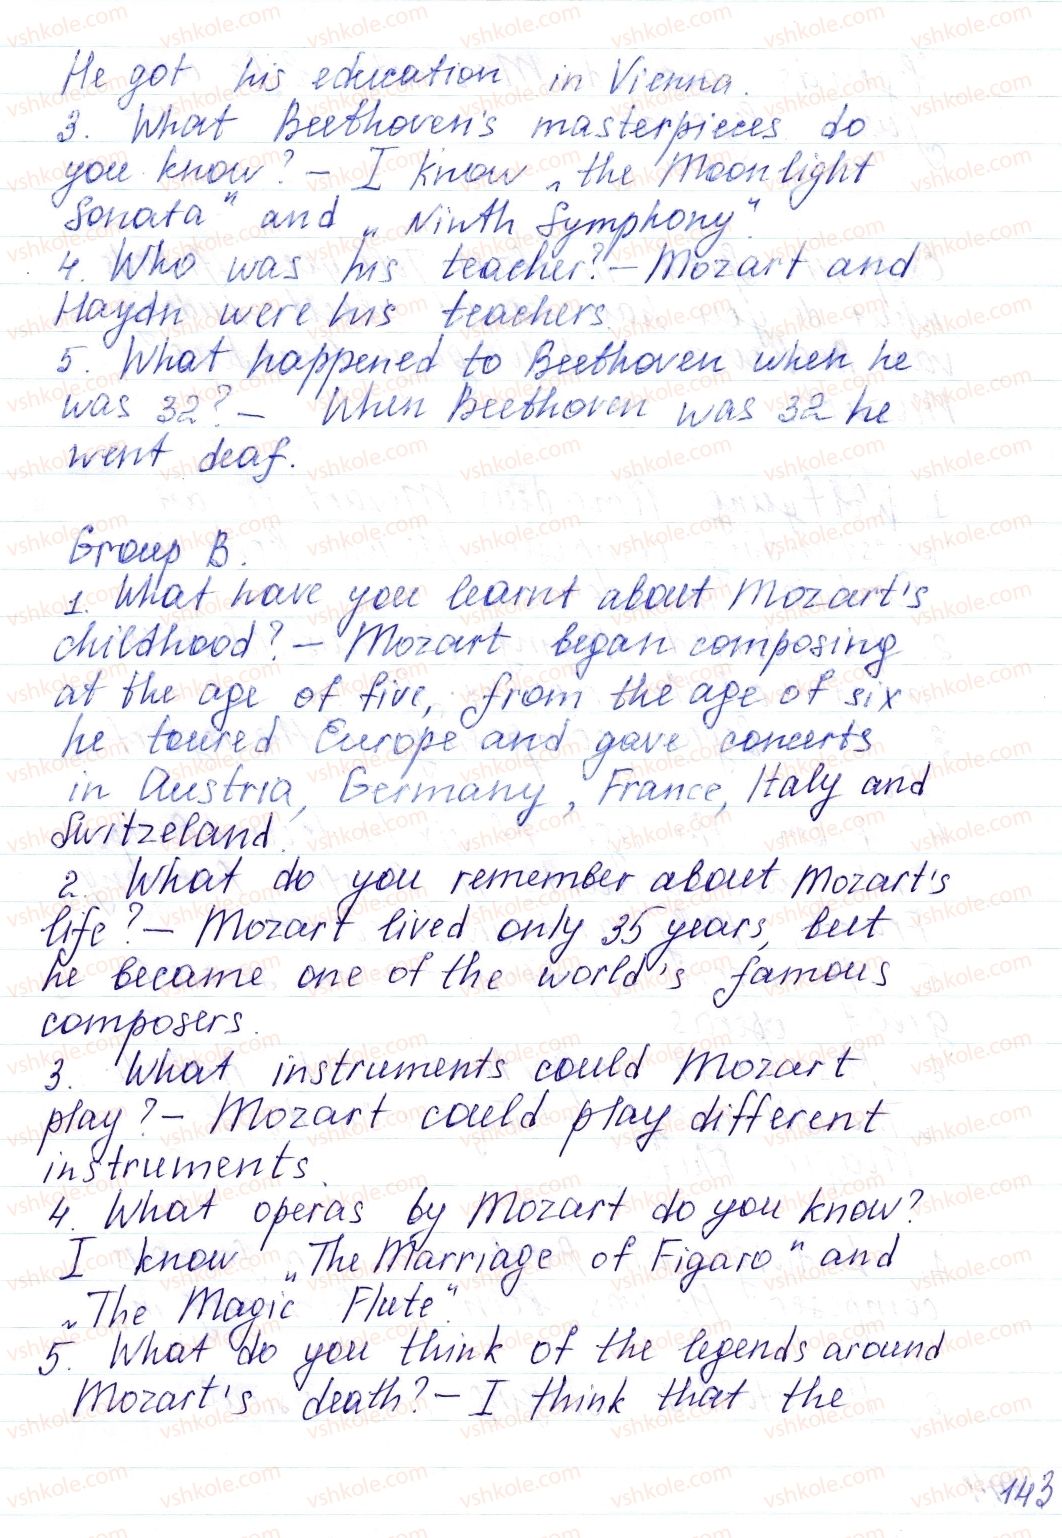 He got his education in Vienna.
3. What Beethoven's masterpieces do
you know? – I know „the Moonlight
Sonata" and „Ninth Symphony".
4. Who was his teacher? – Mozart and
Haydn were his teachers.
5. What happened to Beethoven when he
was 32? – When Beethoven was 32 he
went deaf.
Group B.
1. What have you learnt about Mozart's
childhood? – Mozart began composing
at the age of five, from the age of six
he toured Europe and gave concerts
in Austria, Germany, France, Italy and
Switzeland.
2. What do you remember about Mozart's
life? – Mozart lived only 35 years, but
he became one of the world's famous
composers.
3. What instruments could Mozart
play? – Mozart could play different
instruments.
4. What operas by Mozart do you know?
I know „The Marriage of Figaro" and
„The Magic Flute".
5. What do you think of the legends around
Mozart's death? – I think that the
143